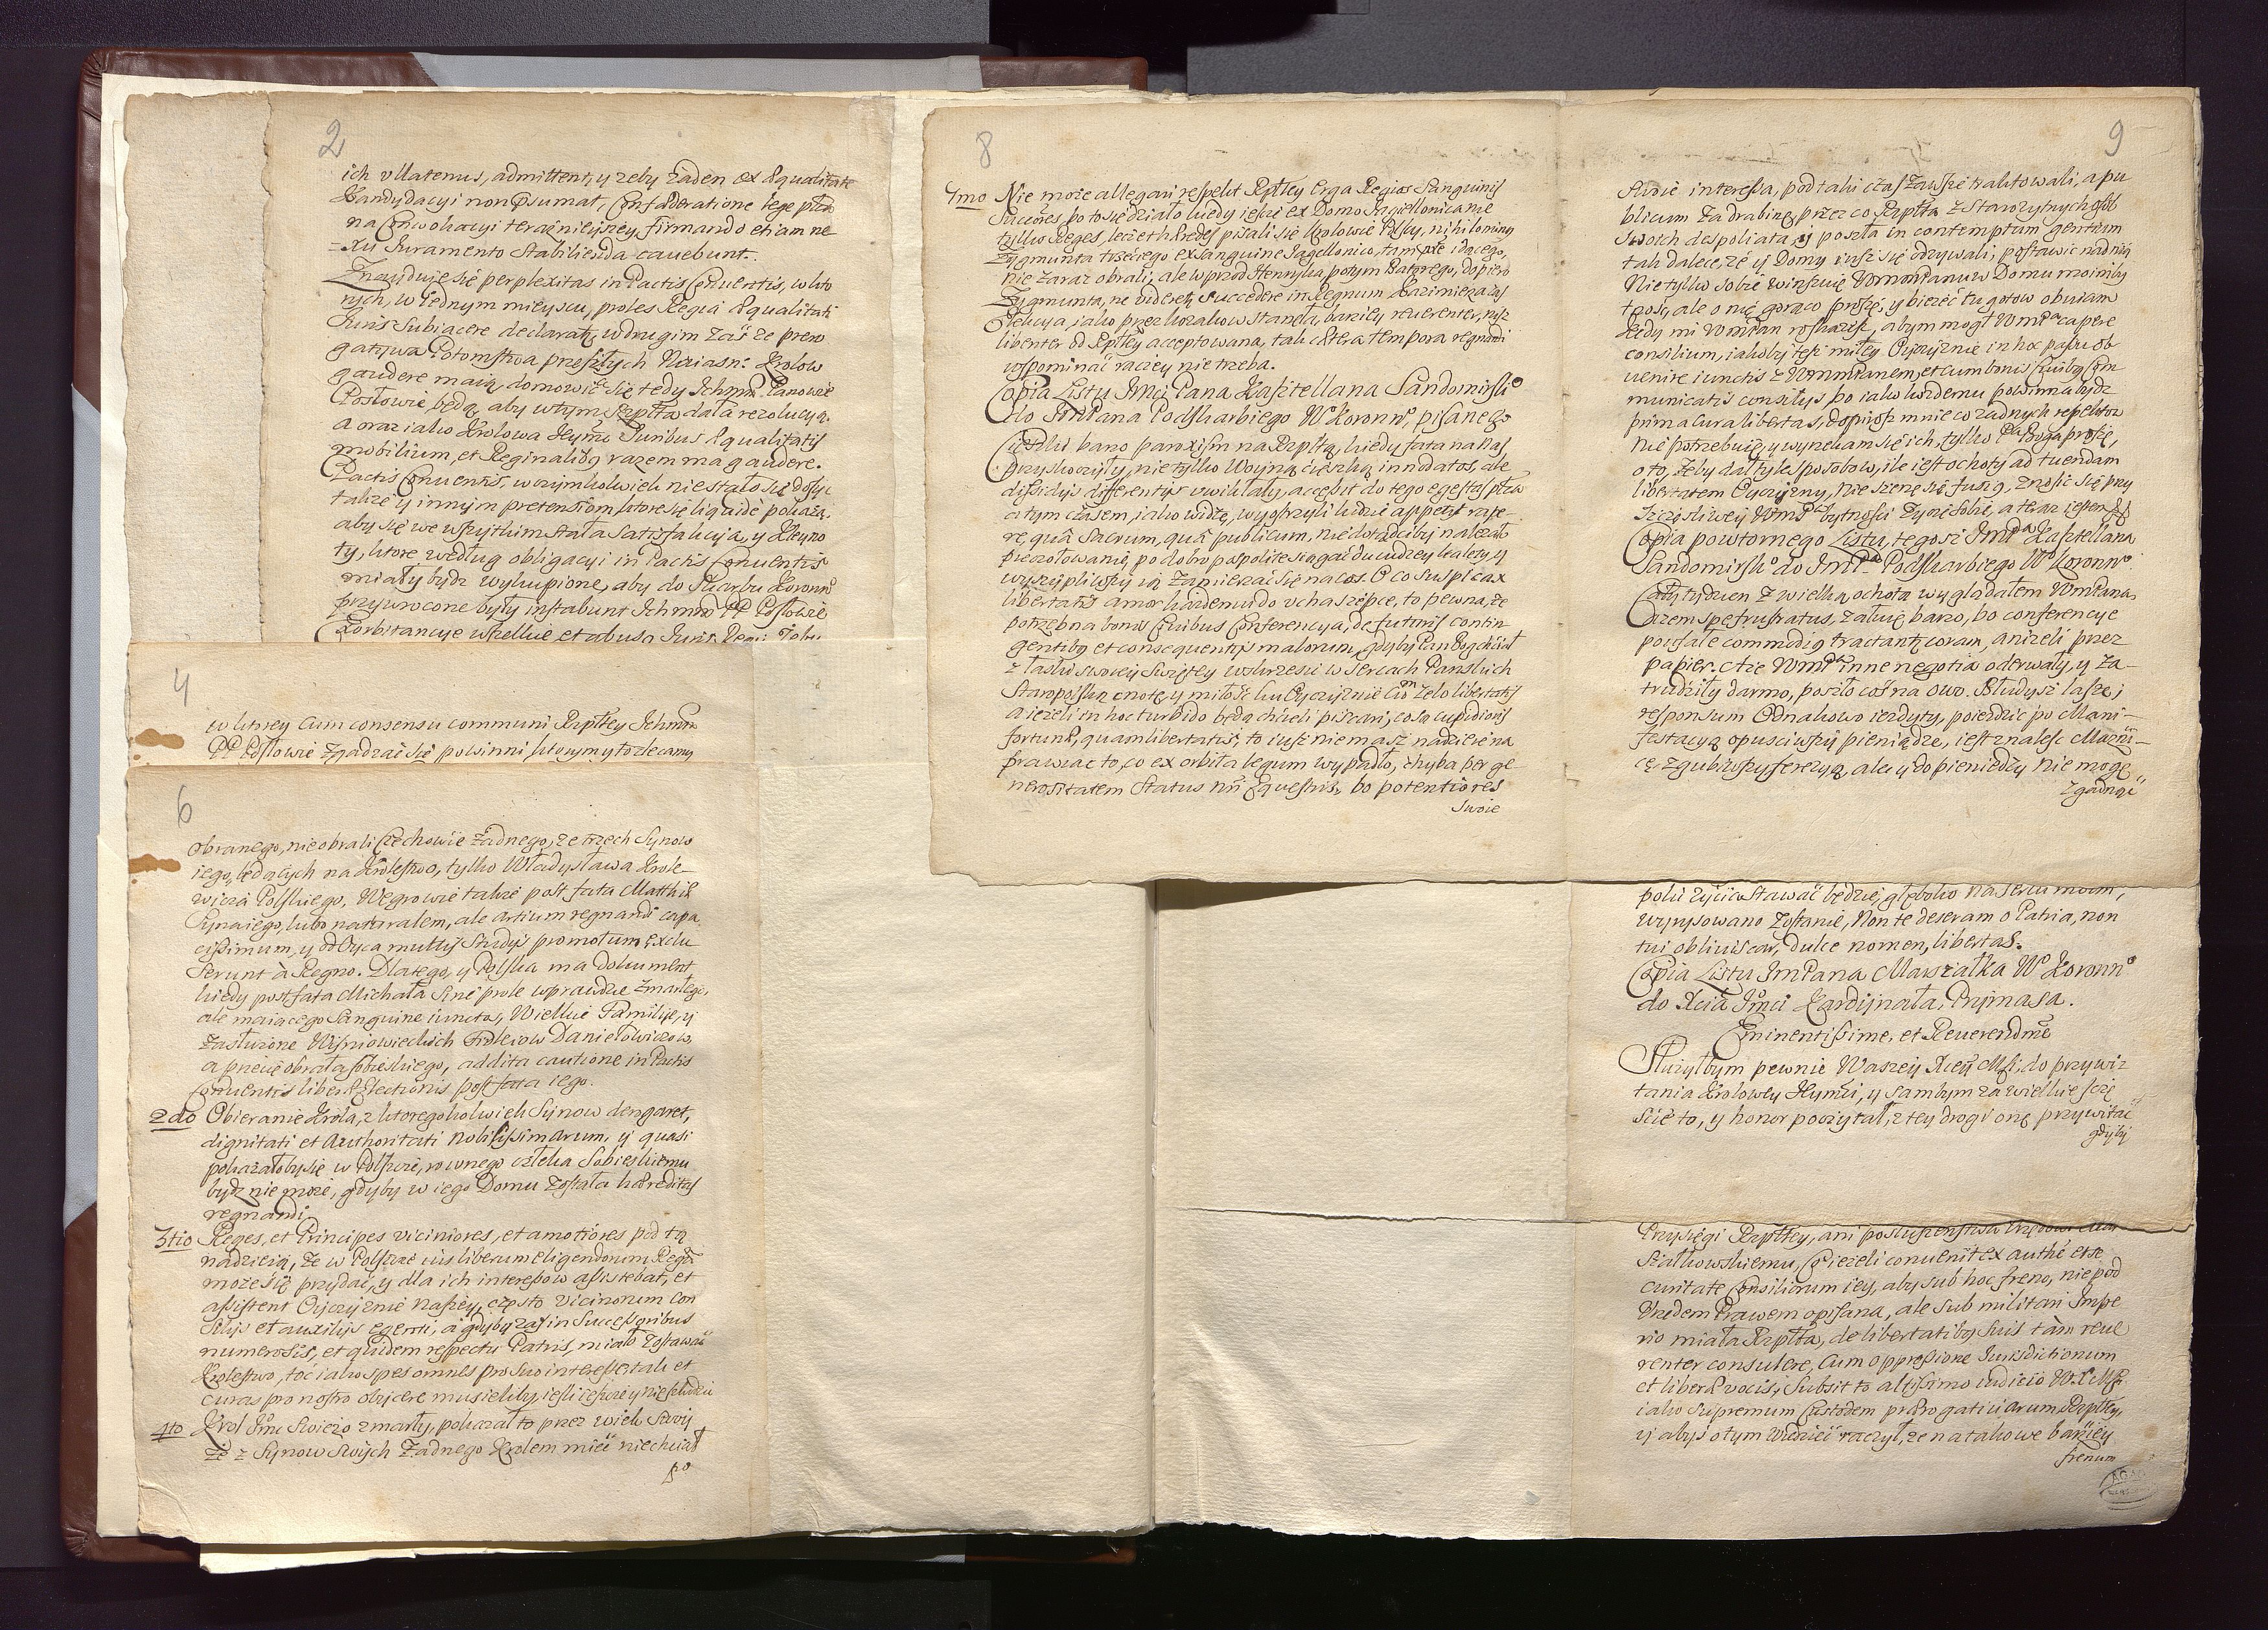 2
ich vllatenus, admittent, y zeby zaden ex Æqualitate
Kandydacyi non
na Convokacyi teraznieyszey, firmando etiam ne
=xu Juramento Stabilienda cavebunt.
Znayduje się perplexitas in Pactis Conuentis, w kto
rych, w iednym mieyscu, proles Regia Æqualitati
Juris Subiacere declarat, w drugim zaś że prero
gatywa Potomstwa przeszłych Naiasn: Krolow
gaudere maią, domowić się tedy Ichmm Panowie
Posłowie będą, aby w tym Rzpłta dała rezolucyą.
A oraz iako Krolowa Jeymć Juribus Æqualitatis
mobilium, et Reginalibus razem ma gaudere.
Pactis Conuentis, w czymkolwiek nie stało się dosyc
takze y innym pretensiom ktore się liquidè pokażą.
aby się we wszytkim stała Satisfakcyja, y Kleyno
ty, ktore według obligacyi in Pactis Conuentis
miały bydz wykupione, aby do Skarbu Koronn°
przywrocone były instabunt Ichmm PP Posłowie
Exorbitancye wszelkie et abusa Juris
4
w ktorey cum consensu communi Rzpłtey Ichmm
PP Posłowie zgadzać się powinni, ktorym y to zlecamy
6
obranego, nie obrali Czechowie żadnego, ze trzech Synow
iego, będących na Krolestwo, tylko Władysława Krole-
wicza Polskiego. Węgrowie takze post fata Matthiæ
Syna iego, lubo naturalem, ale artium regnandi capa
cissimum, y od Oyca multis studys promotum, exclu
serunt à Regno. Dlatego, y Polska ma dokument,
kiedy post fata Michała sine prole wprawdzie zmarłego,
ale maiącego Sanguine iunctos, Wielkie Familije, y
zasłużone Wisniowieckich Xiążąt y Daniełowiczow,
a przecię obrała Sobieskiego, addita cautione in Pactis
Conuentis liberæ Electionis post fata iego.
2do Obieranie Krola, z ktoregokolwiek Synow derogaret,
dignitati et Authoritati nobilissimarum, y quasi
pokazałoby się w Polszcze, rownego człeka Sobieskiemu
bydz nie może, gdyby w iego Domu została hæreditas
regnandi.
3tio Reges, et Principes viciniores, et amotiores pod tą
nadzieią, że w Polszcze ius liberum eligendorum Regum
może się przydać, y dla ich interessow assistebat, et
assistent Oyczyznie naszey, często vicinorum con
silijs et auxilijs egenti, a gdyby zaś in Successoribus
numerosis, et quidem respectu Patris, miało zostawać
Krolestwo, toć iako spes omnes pro suo interesse, tak et
curas pro nostro abijcere musieliby, iesli ieszcze y nie szkodzić
4to Krol Jmć swieżo zmarły, pokazał to przez wiek swoy
że z Synow swoych żadnego Krolem mieć niechciał
po
8
4mo Nie może allegari respekt Rzpłtey erga Regios Sanguinis
Successores, bo to się działo kiedy ieszcze ex Domo Jagiellonica nie
tylko Reges, lecz et hæredes pisali się Krolowie Polscy, nihilominus
Zygmunta trzeciego ex Sanguine Jagellonico, tamże idącego,
nie zaraz obrali, ale wprzod Henryka potym Batorego, dopiero
Zygmunta, ne videretur Succedere in Regnum Kazimierza zaś
Elekcya, iako przez Kozakow stanęła, barziey reuerenter, niż
libenter od Rzpłtey acceptowana, tak cætera tempora regnandi
wspominać raczey nie trzeba.
Copia Listu Jmci Pana Kasztellana Sandomirsk°
do JmPana Podskarbiego W° Koronn°, pisanego
Cięszki barzo paroxism na Rzpltą, kiedy fata na nas
przyskoczyły, nie tylko Woyną cieszką innodatos, ale
dissidijs differentijs uwikłały, accessit do tego egestas ptwa
a tym czasem, iako widzę, wyostrzyli ludzie appetyt rape-
re quà Sacrum, quà publicum, nie dotądciby należało
piezołowanię, po dobro pospolite siągać do cudzey kalety, y
wyszczypliwszy ią zamierzać się na cos. O co suspicax
libertatis amor każdemu do ucha szepce, to pewna, że
potrzebna bonis Ciuibus Conferencya, de futuris contin
gentibus et consequentijs malorum, gdyby Pan Bog chciał
z łaski swoiey Swiętey wskrzesić w sercach Panskich
Staropolską cnotę, y miłość ku Oyczyznie cum zelo libertatis
a iezeli in hoc turbido będą chcieli piscari, cosa cupidiores
fortunæ, quam libertatis, to iusz niemasz nadzieie na
prawiać to, co ex orbita legum wypadło, chyba per ge
nerositatem Status nri Equestris, bo potentiores
swoie
9
Swoie interessa, pod taki czas zawsze traktowali, a pu
blicum za drabinę, przez co Rzplta z Starozytnych ozob
swoich despoliata, y poszła in contemptum gentium
tak dalece, ze y Domy iusz się ozywali, postawic nad nią
Nie tylko sobie winszuię WmmPanu w Domu moim by
tnosi, ale o nię gorąco proszę, y bieżeć tu gotow obuiam
kędy mi WmPan roskażesz, abym mogł WmPa capere
consilium, iakoby tesz miłey Oyczyznie in hoc passu ob
uenire iunctis z WmmPanem, et cum bonis Ciuibus Com
municatis consilijs bo iako kozdemu powinna bydz
prima cura libertas, dopirosz mnie co żadnych respektow
nie potrzebuię, y wyrzekam się ich, tylko Pa Boga proszę,
o to, żeby dał tyle sposobow, ile iest ochoty ad tuendam
libertatem Oyczyzny, nie szerzę się fusius, znosic się przy
szczęsliwey WmPa bytnosci życzę sobie, a teraz iestem
Copia powtornego Listu, tegosz JmPa Kasztellana
Sandomirsk° do JmPa Podskarbiego W° Koronn°.
Cały tydzien z wielką ochotą wyglądałem WmPana,
ażem spe frustratus, załuię barzo, bo conferencye
poufałe commodius tractantur coram, aniżeli przez
papier. Ale WmPa inne negotia oderwały, y za-
trudziły darmo, poszło coś na owo.
responsum Odnakowo iezdyty, poiezdzić po Mani-
festacyą opusciwszy pieniądze, iest znalesc Mazni-
cę zgubiwszy ferezyą, ale y do pieniedzy nie mogę
zgadnąć
poki życia stawać będzie, głęboko na sercu moim,
wyrysowano zostanie, Non te deseram o Patria, non
tui obliuiscar, dulce nomen, libertas.
Copia Listu JmPana Marszałka W° Koronn°
do Xcia Jmci Kardynała, Prymasa.
Eminentissime, et Reuerendme
Służyłbym pewnie Waszey Xcey Mści, do przywi
tania Krolowey Jeymci, y sambym za wielkie szczę
ście to, y honor poczytał, z tey drogi onę przywitać
gdyby
Przysięgi Rzpłtey, ani posłuszenstwa Urzędowi Mar
szałkowskiemu, Co iezeli conuenit ex authte et se
curitate Consiliorum iey, aby sub hoc freno, nie pod
Urzedem Prawem opisana, ale sub militari Impe
rio miała Rzpłta, de libertatibus suis tam reue
renter consulere, cum oppressione Jurisdictionum
et liberæ vocis, Subsit to altissimo iudicio W.X.Msc
iako supremum Custodem prærogatiuarum Rzpłtey,
y abyś o tym wiedzieć raczył, że na takowe barziey
frenum
AGAD